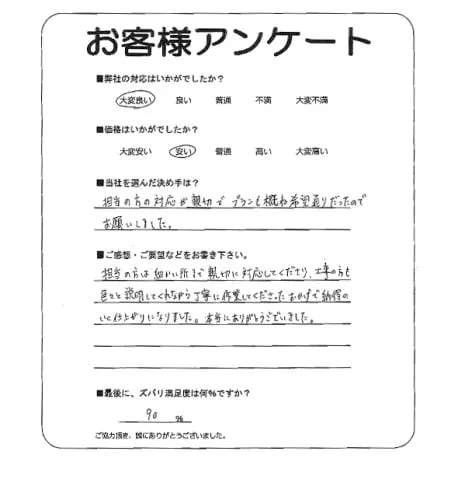 お客様アンケート
■弊社の対応はいかがでしたか?
大変良い 良い 普通 不満 大変不満
■価格はいかがでしたか?
大変安い 安い 普通 高い 大変高い
■当社を選んだ決め手は?
担当の方の対応が親切で プランも概ね希望通りだったので
お願いしました。
■ご感想・ご要望などをお書き下さい。
担当の方は細かい所まで親切に対応してくださり、工事の方も
色々と説明してくれながら丁寧に作業してくださったおかげで納得の
いく仕上がりになりました。本当にありがとうございました。
■最後に、ズバリ満足度は何%ですか?
90 %
ご協力頂き、誠にありがとうございました。